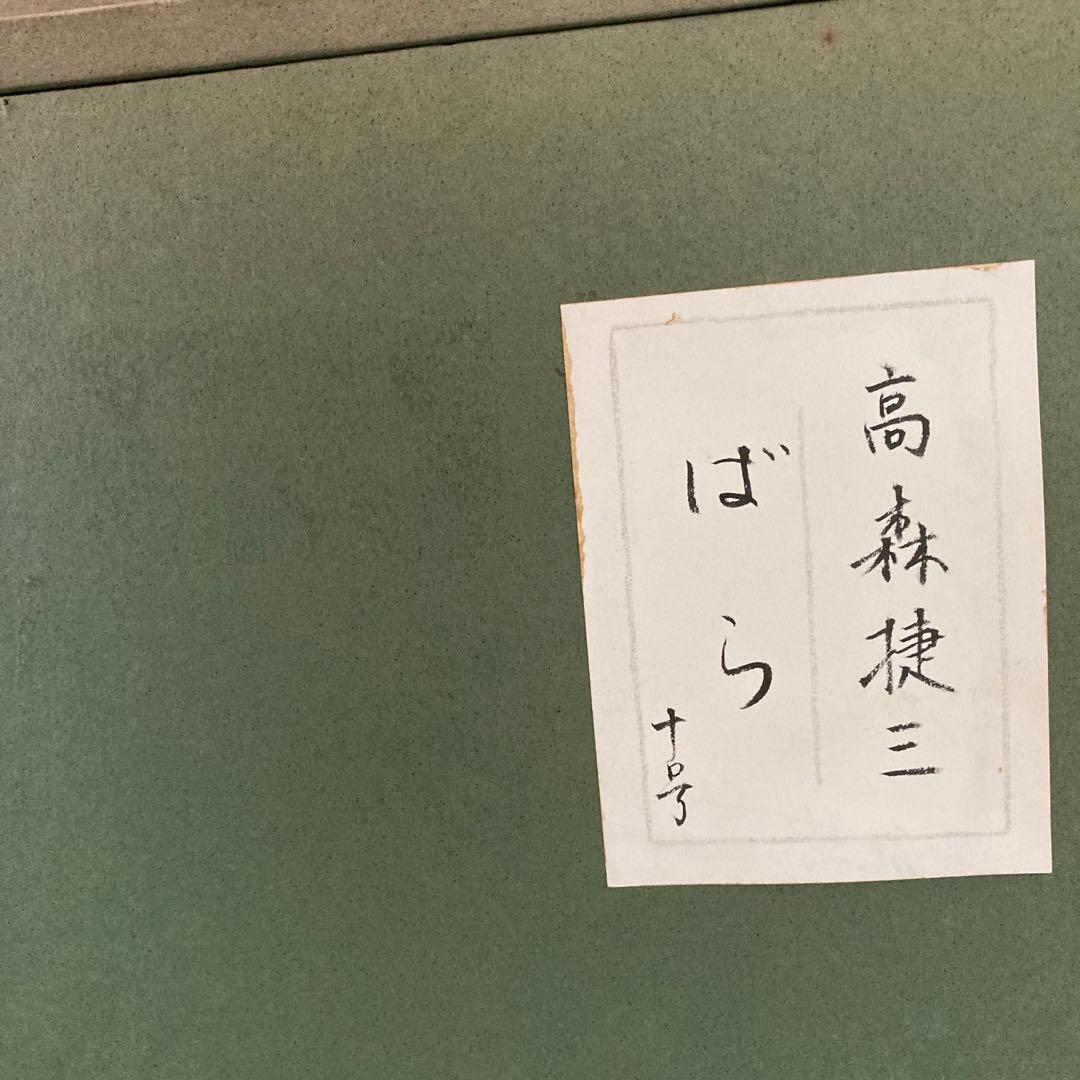 高森捷三
ばら
十号